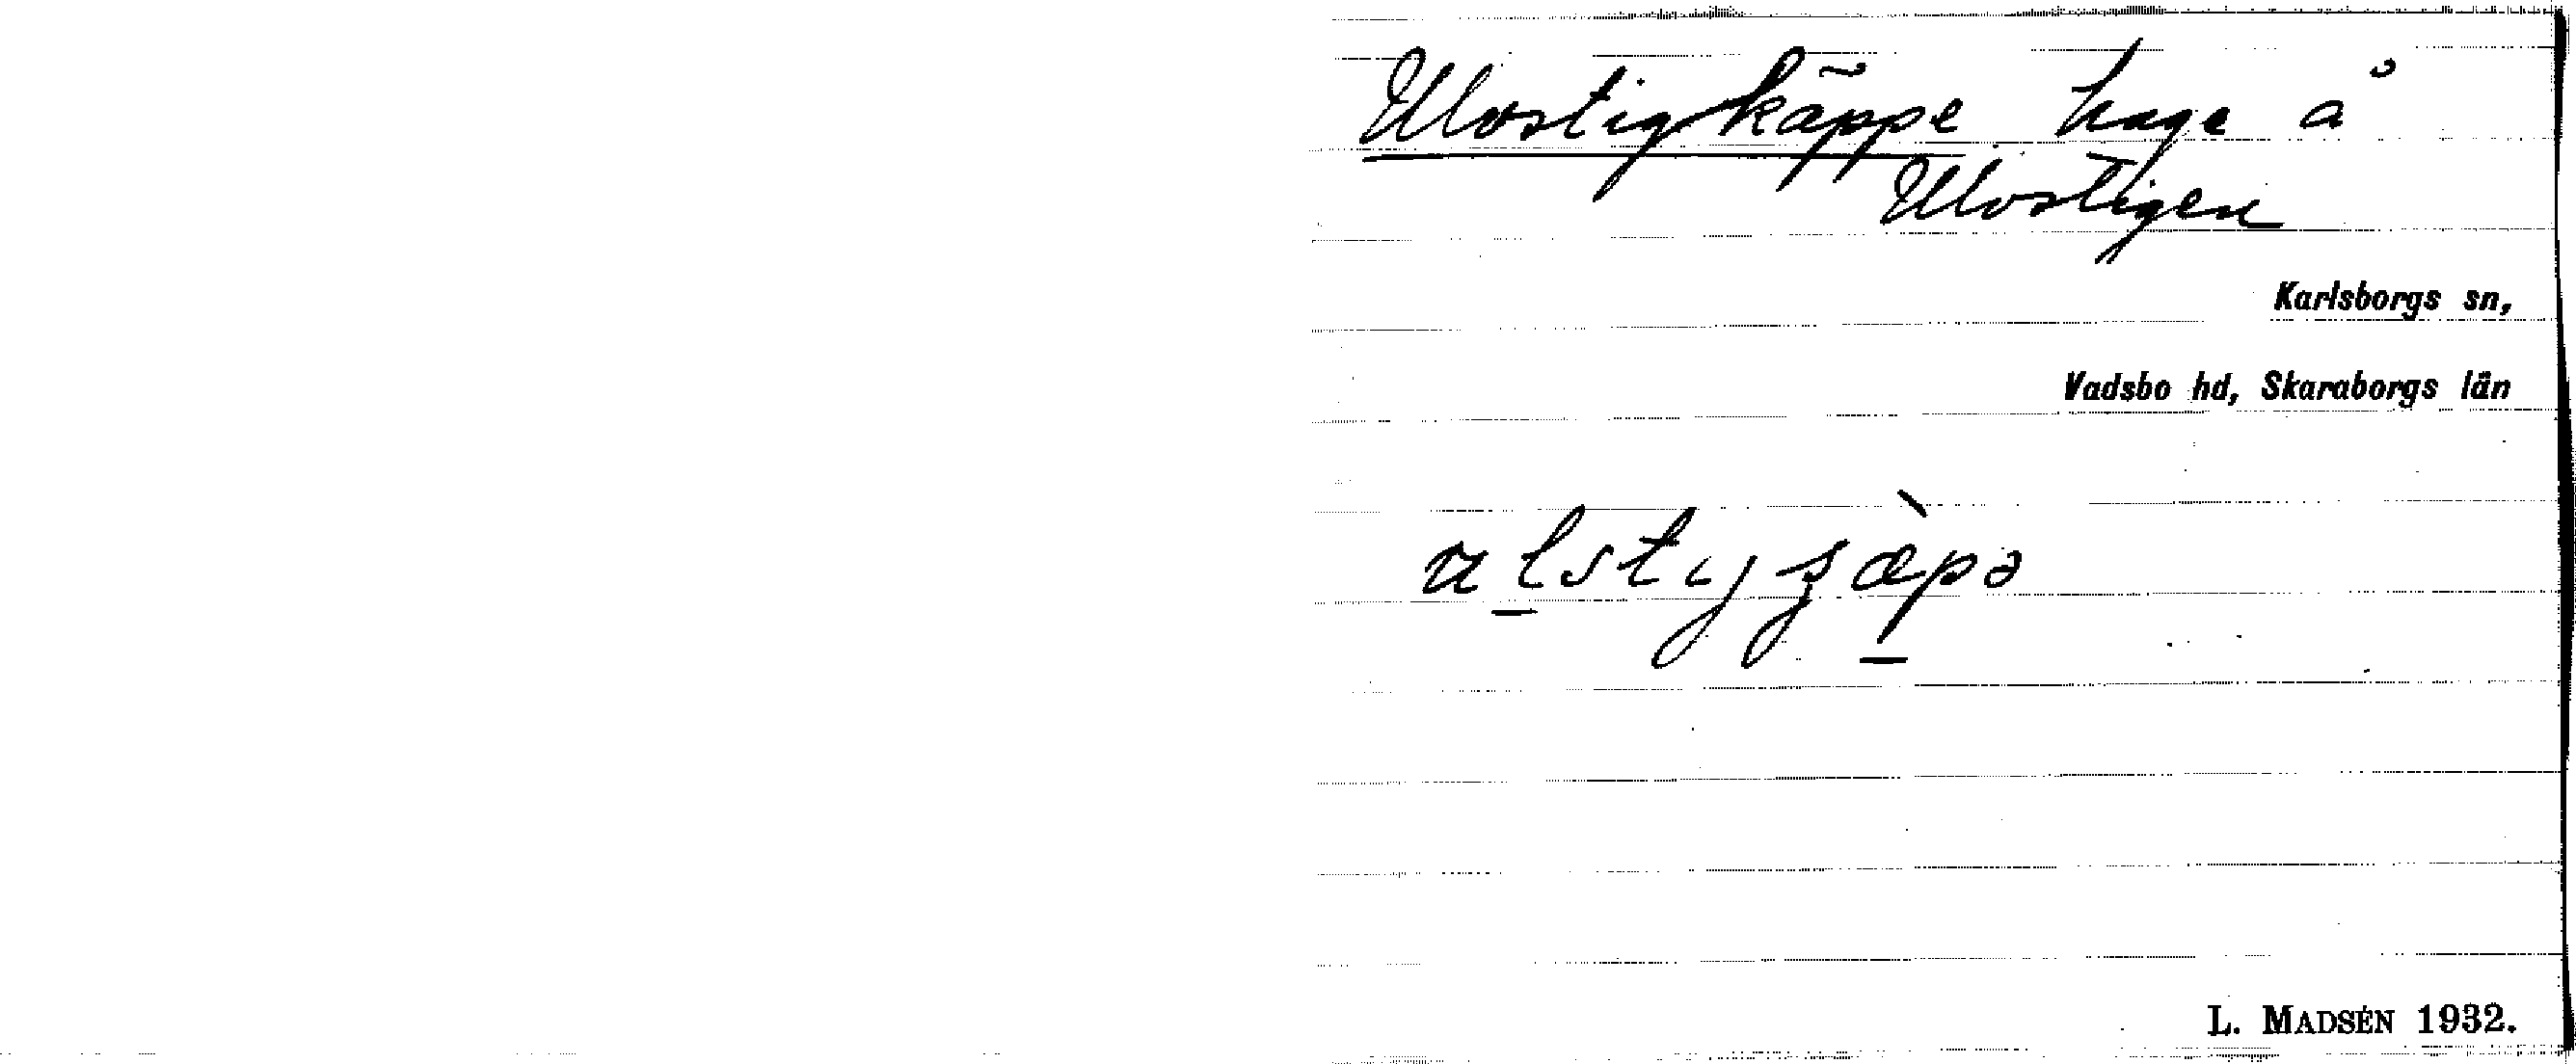 Ulvstigkäppe hage å
Ulvstigen
Karlsborgs sn,
Vadsbo hd, Skaraborgs län
L. MADSÉN 1932.